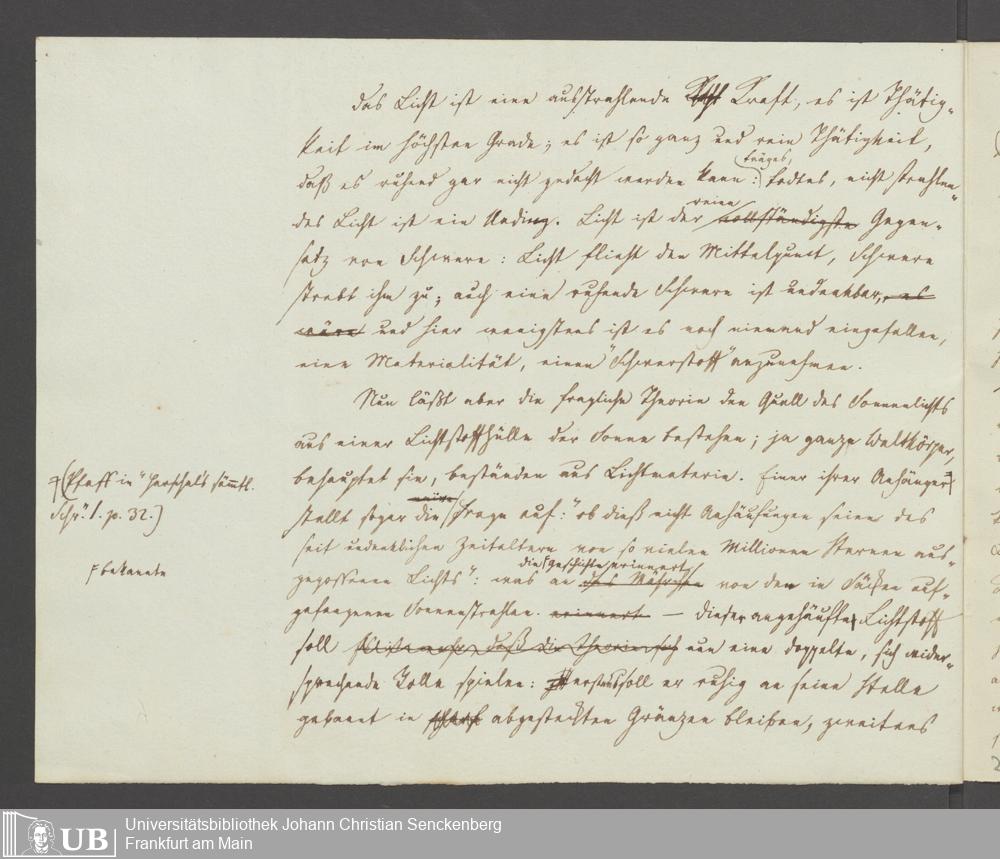 Das Licht ist eine ausstrahlende Kraft, es ist Thätig-
keit im höchsten Grade; es ist so ganz und rein Thätigkeit,
daß es ruhend gar nicht gedacht werden kann: träges, todtes, nicht strahlen-
des Licht ist ein Unding. Licht ist der reine vollständigste Gegen-
satz von Schwere: Licht flieht den Mittelpunct, Schwere
strebt ihm zu; auch eine ruhende Schwere ist undenkbar, es
wäre und hier wenigstens ist es noch niemand eingefallen,
eine Materialität, einen "Schwerstoff" anzunehmen.
Nun läßt aber die fragliche Theorie den Quell des Sonnenlichts
aus einer Lichtstoffhülle der Sonne bestehen; ja ganze Weltkörper,
behauptet sie, beständen aus Lichtmaterie. Einer ihrer Anhänger
(Pfaff in "Herschel's sämtl.
Schr." 1. p. 32.)
stellt sogar die naive Frage auf: "ob dieß nicht Anhäufungen seien des
seit undenklichen Zeitaltern von so vielen Millionen Sternen aus-
bekannte
gegossenen Lichts": was an die Geschichte erinnert das Mährchen von den in Säcken auf-
gefangenen Sonnenstrahlen. erinnert — Dieser angehäufte Lichtstoff
soll daß die Theorie sich nun eine doppelte, sich wider-
sprechende Rolle spielen: erstens soll er ruhig an seine Stelle
gebannt in scharf abgesteckten Gränzen bleiben, zweitens
UB
Universitätsbibliothek Johann Christian Senckenberg
Frankfurt am Main